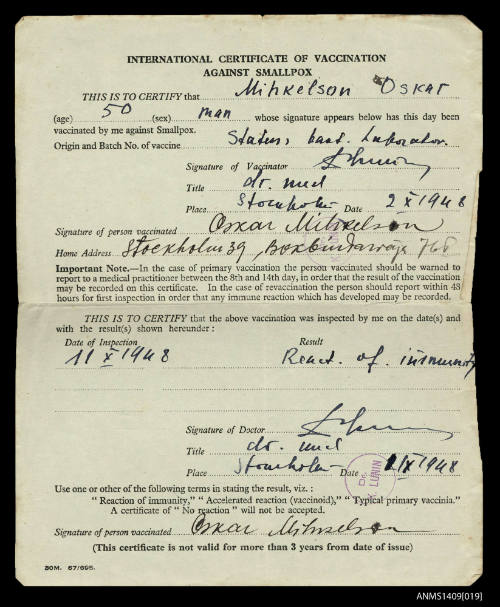 INTERNATIONAL CERTIFICATE OF VACCINATION
AGAINST SMALLPOX
THIS IS TO CERTIFY that Mihkelson Oskar
(age) 50 (sex) man whose signature appears below has this day been
vaccinated by me against Smallpox.
Origin and Batch No. of vaccine Statens bact. Laborator.
Signature of Vaccinator
Title dr. med
Place Stockholm Date 2 X 1948
Signature of person vaccinated Oskar Mihkelson
Home Address Stockholm 39, 76B
Important Note.—In the case of primary vaccination the person vaccinated should be warned to
report to a medical practitioner between the 8th and 14th day, in order that the result of the vaccination
may be recorded on this certificate. In the case of revaccination the person should report within 48
hours for first inspection in order that any immune reaction which has developed may be recorded.
THIS IS TO CERTIFY that the above vaccination was inspected by me on the date(s) and
with the result(s) shown hereunder :
Date of Inspection Result
11 X 1948 React. of immunity
Signature of Doctor
Title dr. med
Place Stockholm Date 11 X 1948
DR. LUNIN
Use one or other of the following terms in stating the result, viz. :
" Reaction of immunity," " Accelerated reaction (vaccinoid)," " Typical primary vaccinia."
A certificate of " No reaction " will not be accepted.
Signature of person vaccinated Oskar Mihkelson
(This certificate is not valid for more than 3 years from date of issue)
30M. 57/695.
ANMS1409[019]